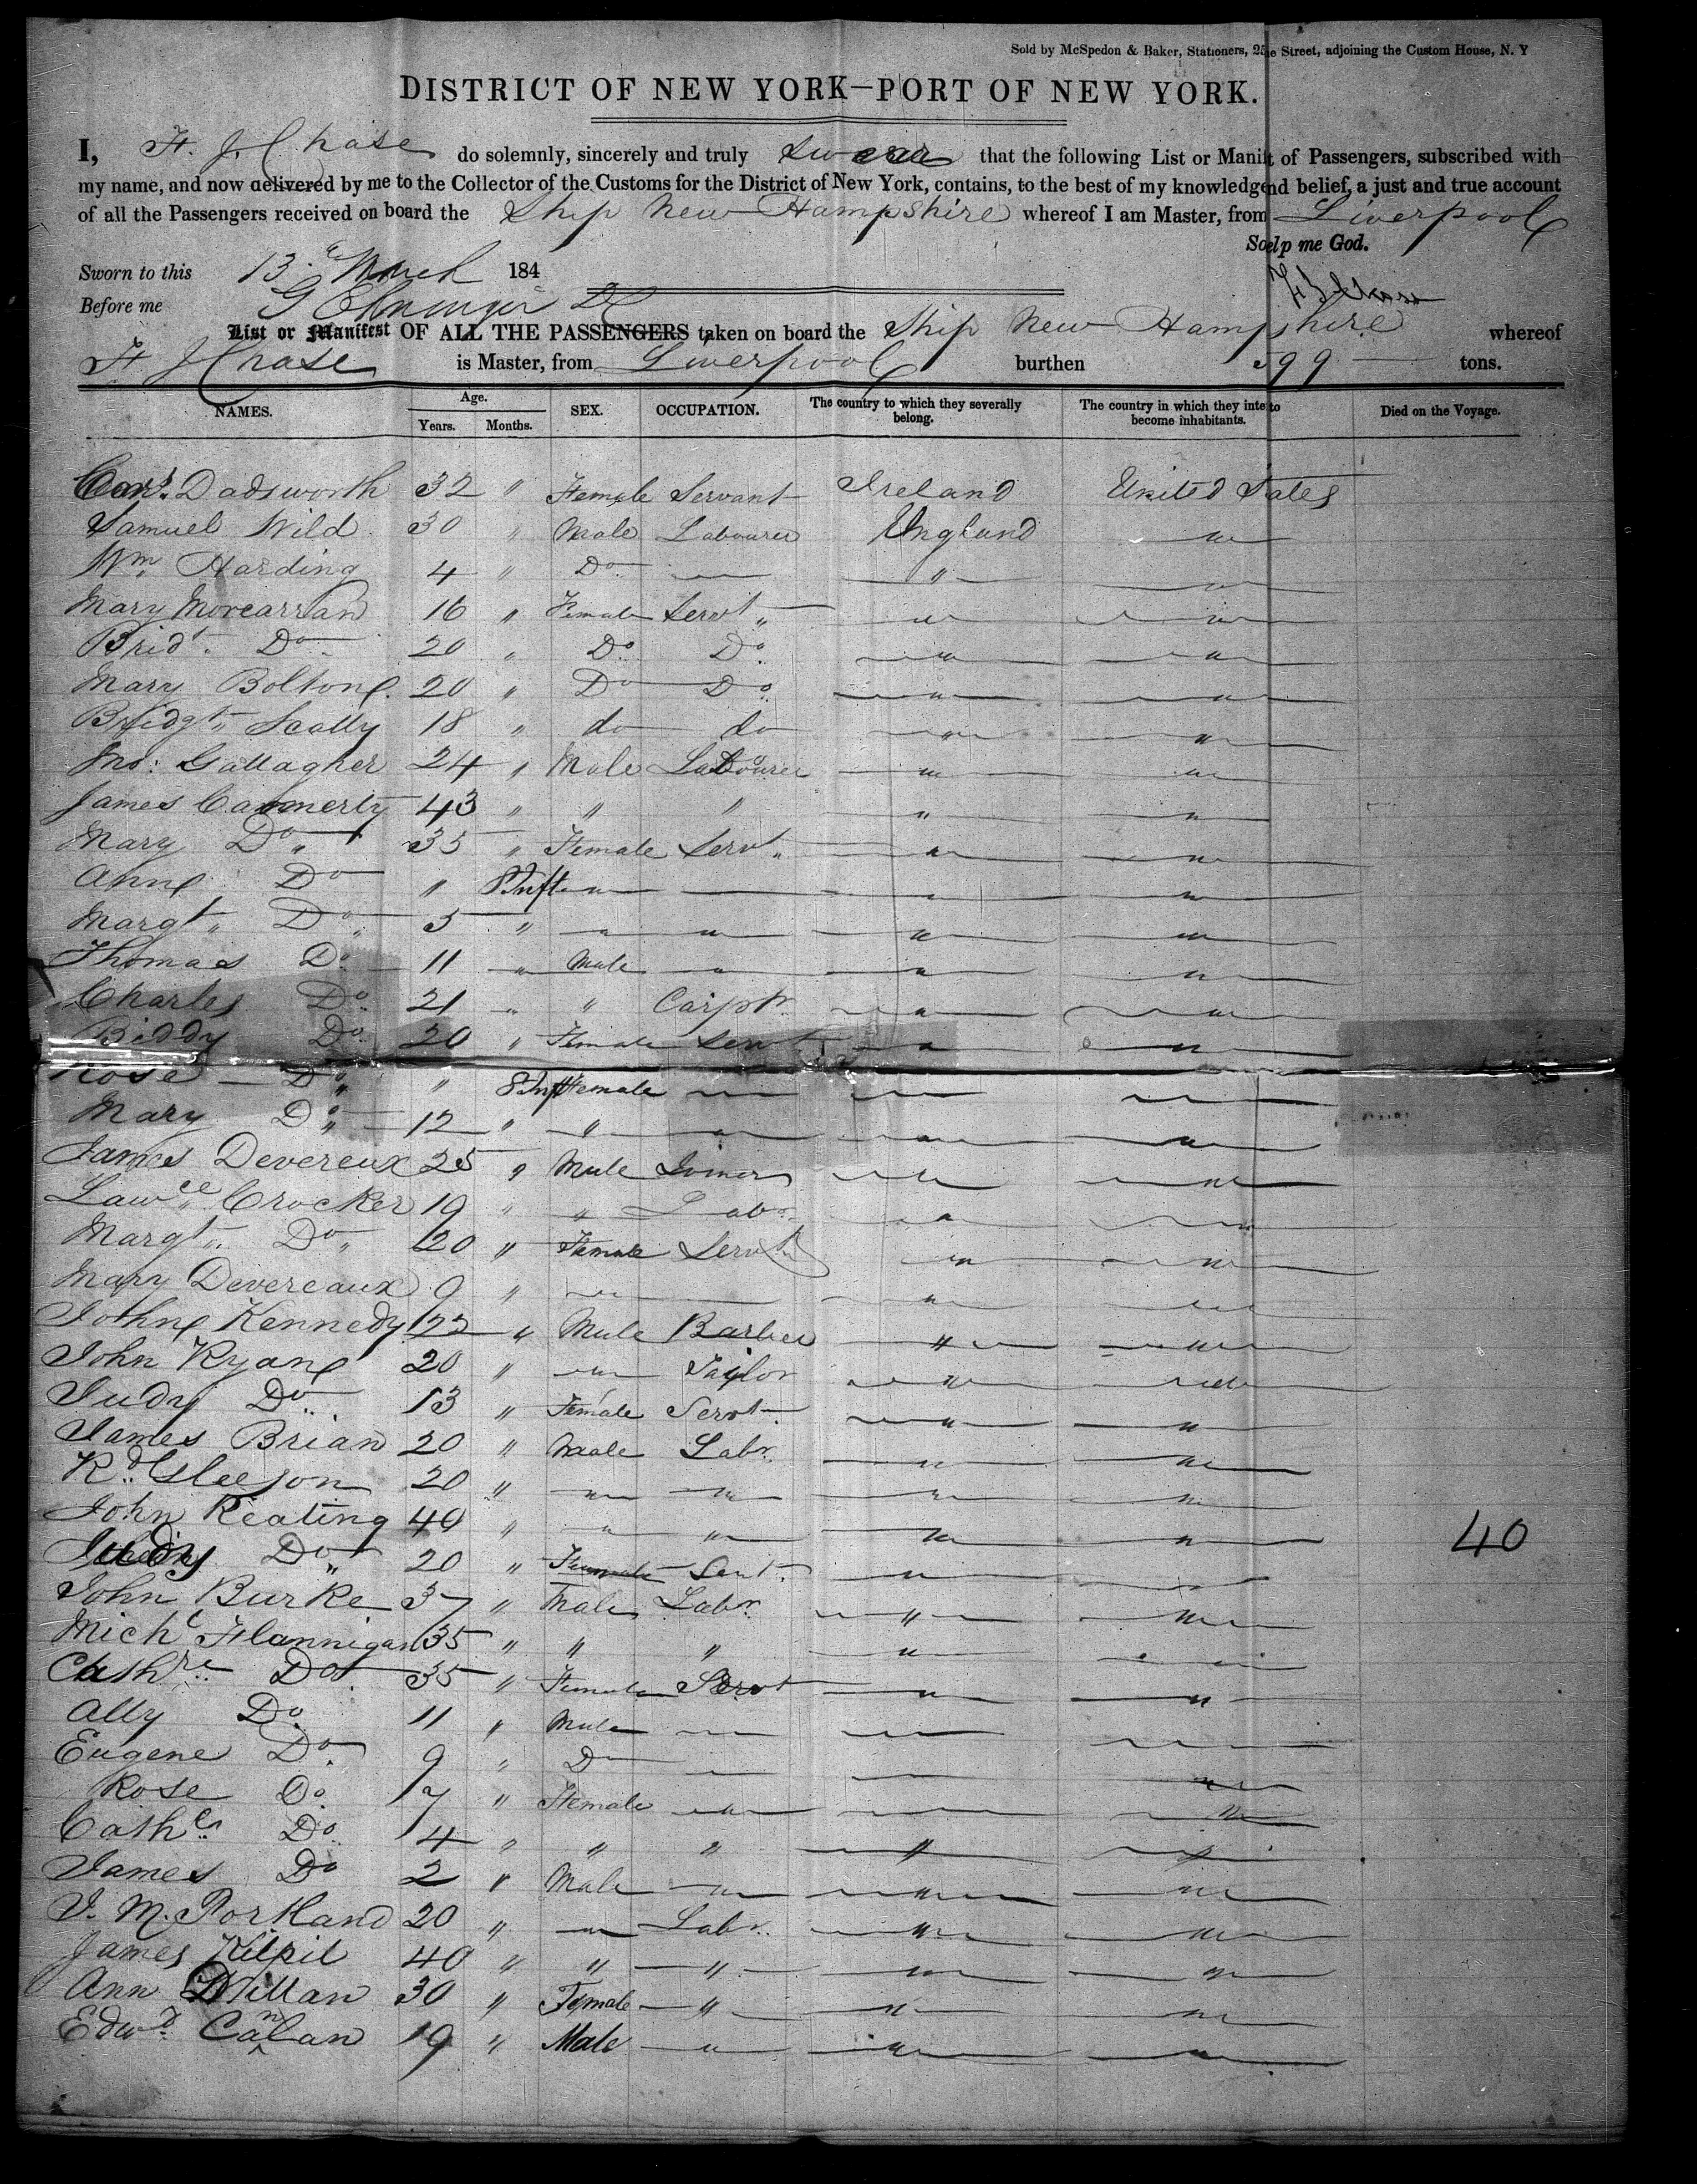 Sold by McSpedon & Baker, Stationers, 25 ne Street, adjoining the Custom House, N. Y
DISTRICT OF NEW YORK—PORT OF NEW YORK.
I, F. J. Chase do solemnly, sincerely and truly swear that the following List or Manit of Passengers, subscribed with
my name, and now delivered by me to the Collector of the Customs for the District of New York, contains, to the best of my knowledg nd belief, a just and true account
of all the Passengers received on board the Ship New Hampshire whereof I am Master, from Liverpool
So elp me God.
Sworn to this 13 March 184
F J Chase
Before me
List or Manifest OF ALL THE PASSENGERS taken on board the Ship New Hampshire whereof
F J Chase is Master, from Liverpool burthen 99 tons.
NAMES. Age. Years. Months. SEX. OCCUPATION. The country to which they severally belong. The country in which they inte to become inhabitants. Died on the Voyage.
Dadsworth 32 " Female Servant Ireland United States
Samuel Wild 30 " Male Labourer England "
Wm Harding 4 " Do — " "
Mary 16 " Female Servt " " "
Bridt Do 20 " Do Do " "
Mary Bolton 20 " Do Do " "
Bridgt Scally 18 " do do " "
Jno: Gallagher 24 " Male Labourer " "
James 43 " " " " "
Mary Do 35 " Female Servt " "
Ann Do " 8 Inft " — " "
Margt Do 5 " " " " "
Thomas Do 11 " Male " " "
Charles Do 21 " " Carptr " "
Biddy Do 20 " Female Servt " "
Rose Do " 8 Inft Female " " "
Mary Do 12 " " " " "
James Devereux 25 " Male " "
Lawce Crocker 19 " " Labr " "
Margt Do 20 " Female Servt " "
Mary Devereaux 9 " " — " "
John Kennedy 22 " Male Barber " "
John Ryan 20 " " Taylor " "
Judy Do 13 " Female Servt " "
James Brian 20 " Male Labr " "
Rd Gleeson 20 " " " " "
John Keating 40 " " " " " 40
Judy Do 20 " Female Servt " "
John Burke 37 " Male Labr " "
Michl Flannigan 35 " " " " "
Cathre Do 35 " Female Servt " "
Ally Do 11 " Male " " "
Eugene Do 9 " Do " " "
Rose Do 7 " Female " " "
Cathe Do 4 " " " " "
James Do 2 " Male " " "
J. M. Portland 20 " " Labr " "
James Kilpil 40 " " " " "
Ann Dillan 30 " Female " " "
Edwd Canlan 19 " Male " " "